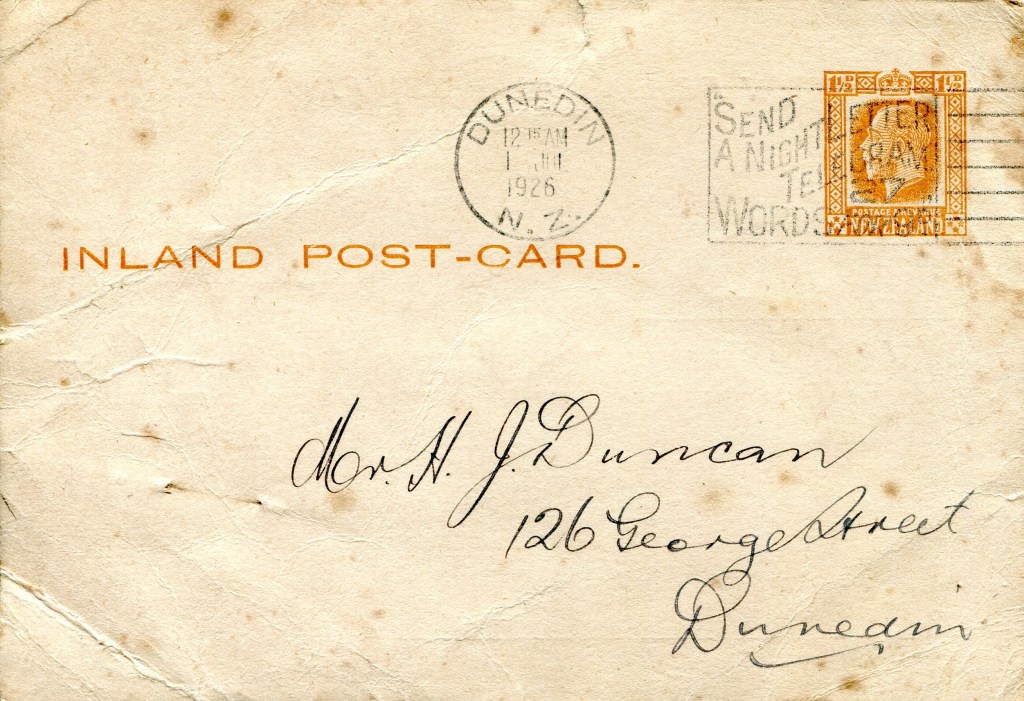 DUNEDIN
12 15 AM
1 JUL
1926
N. Z.
"SEND
A NIGHT LETTER
TELEGRAM
WORDS
1½D 1½D
POSTAGE & REVENUE
INLAND POST-CARD.
Mr. H. J. Duncan
126 George Street
Dunedin